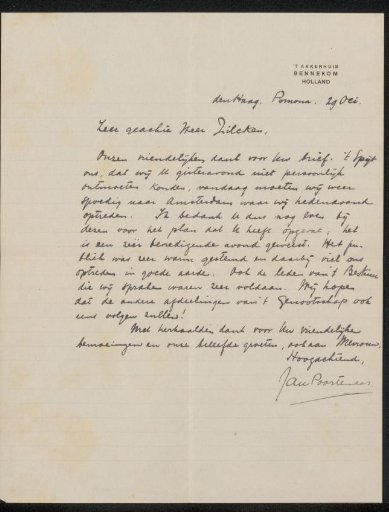 'T AKKERHUIS
BENNEKOM
HOLLAND
den Haag. Pomona. 29 Oct.
Zeer geachte Heer Zilcken,
Onzen vriendelijken dank voor Uw brief. 't Spijt
ons, dat wij U gisteravond niet persoonlijk
ontmoeten konden, vandaag moeten wij weer
spoedig naar Amsterdam waar wij hedenavond
optreden. Ik bedank U dus nog eens bij
dezen voor het plan dat U heeft opgezet; het
is een zéér bevredigende avond geweest. Het pu-
bliek was zeer warm gestemd en daarbij viel ons
optreden in goede aarde. Ook de leden van 't Bestuur
die wij spraken waren zeer voldaan. Wij hopen
dat de andere afdeelingen van 't Genootschap ook
eens volgen zullen!
Met herhaalden dank voor Uw vriendelijke
bemoeiingen en onze beleefde groeten, ook aan Mevrouw,
Hoogachtend,
Jan Poortenaar